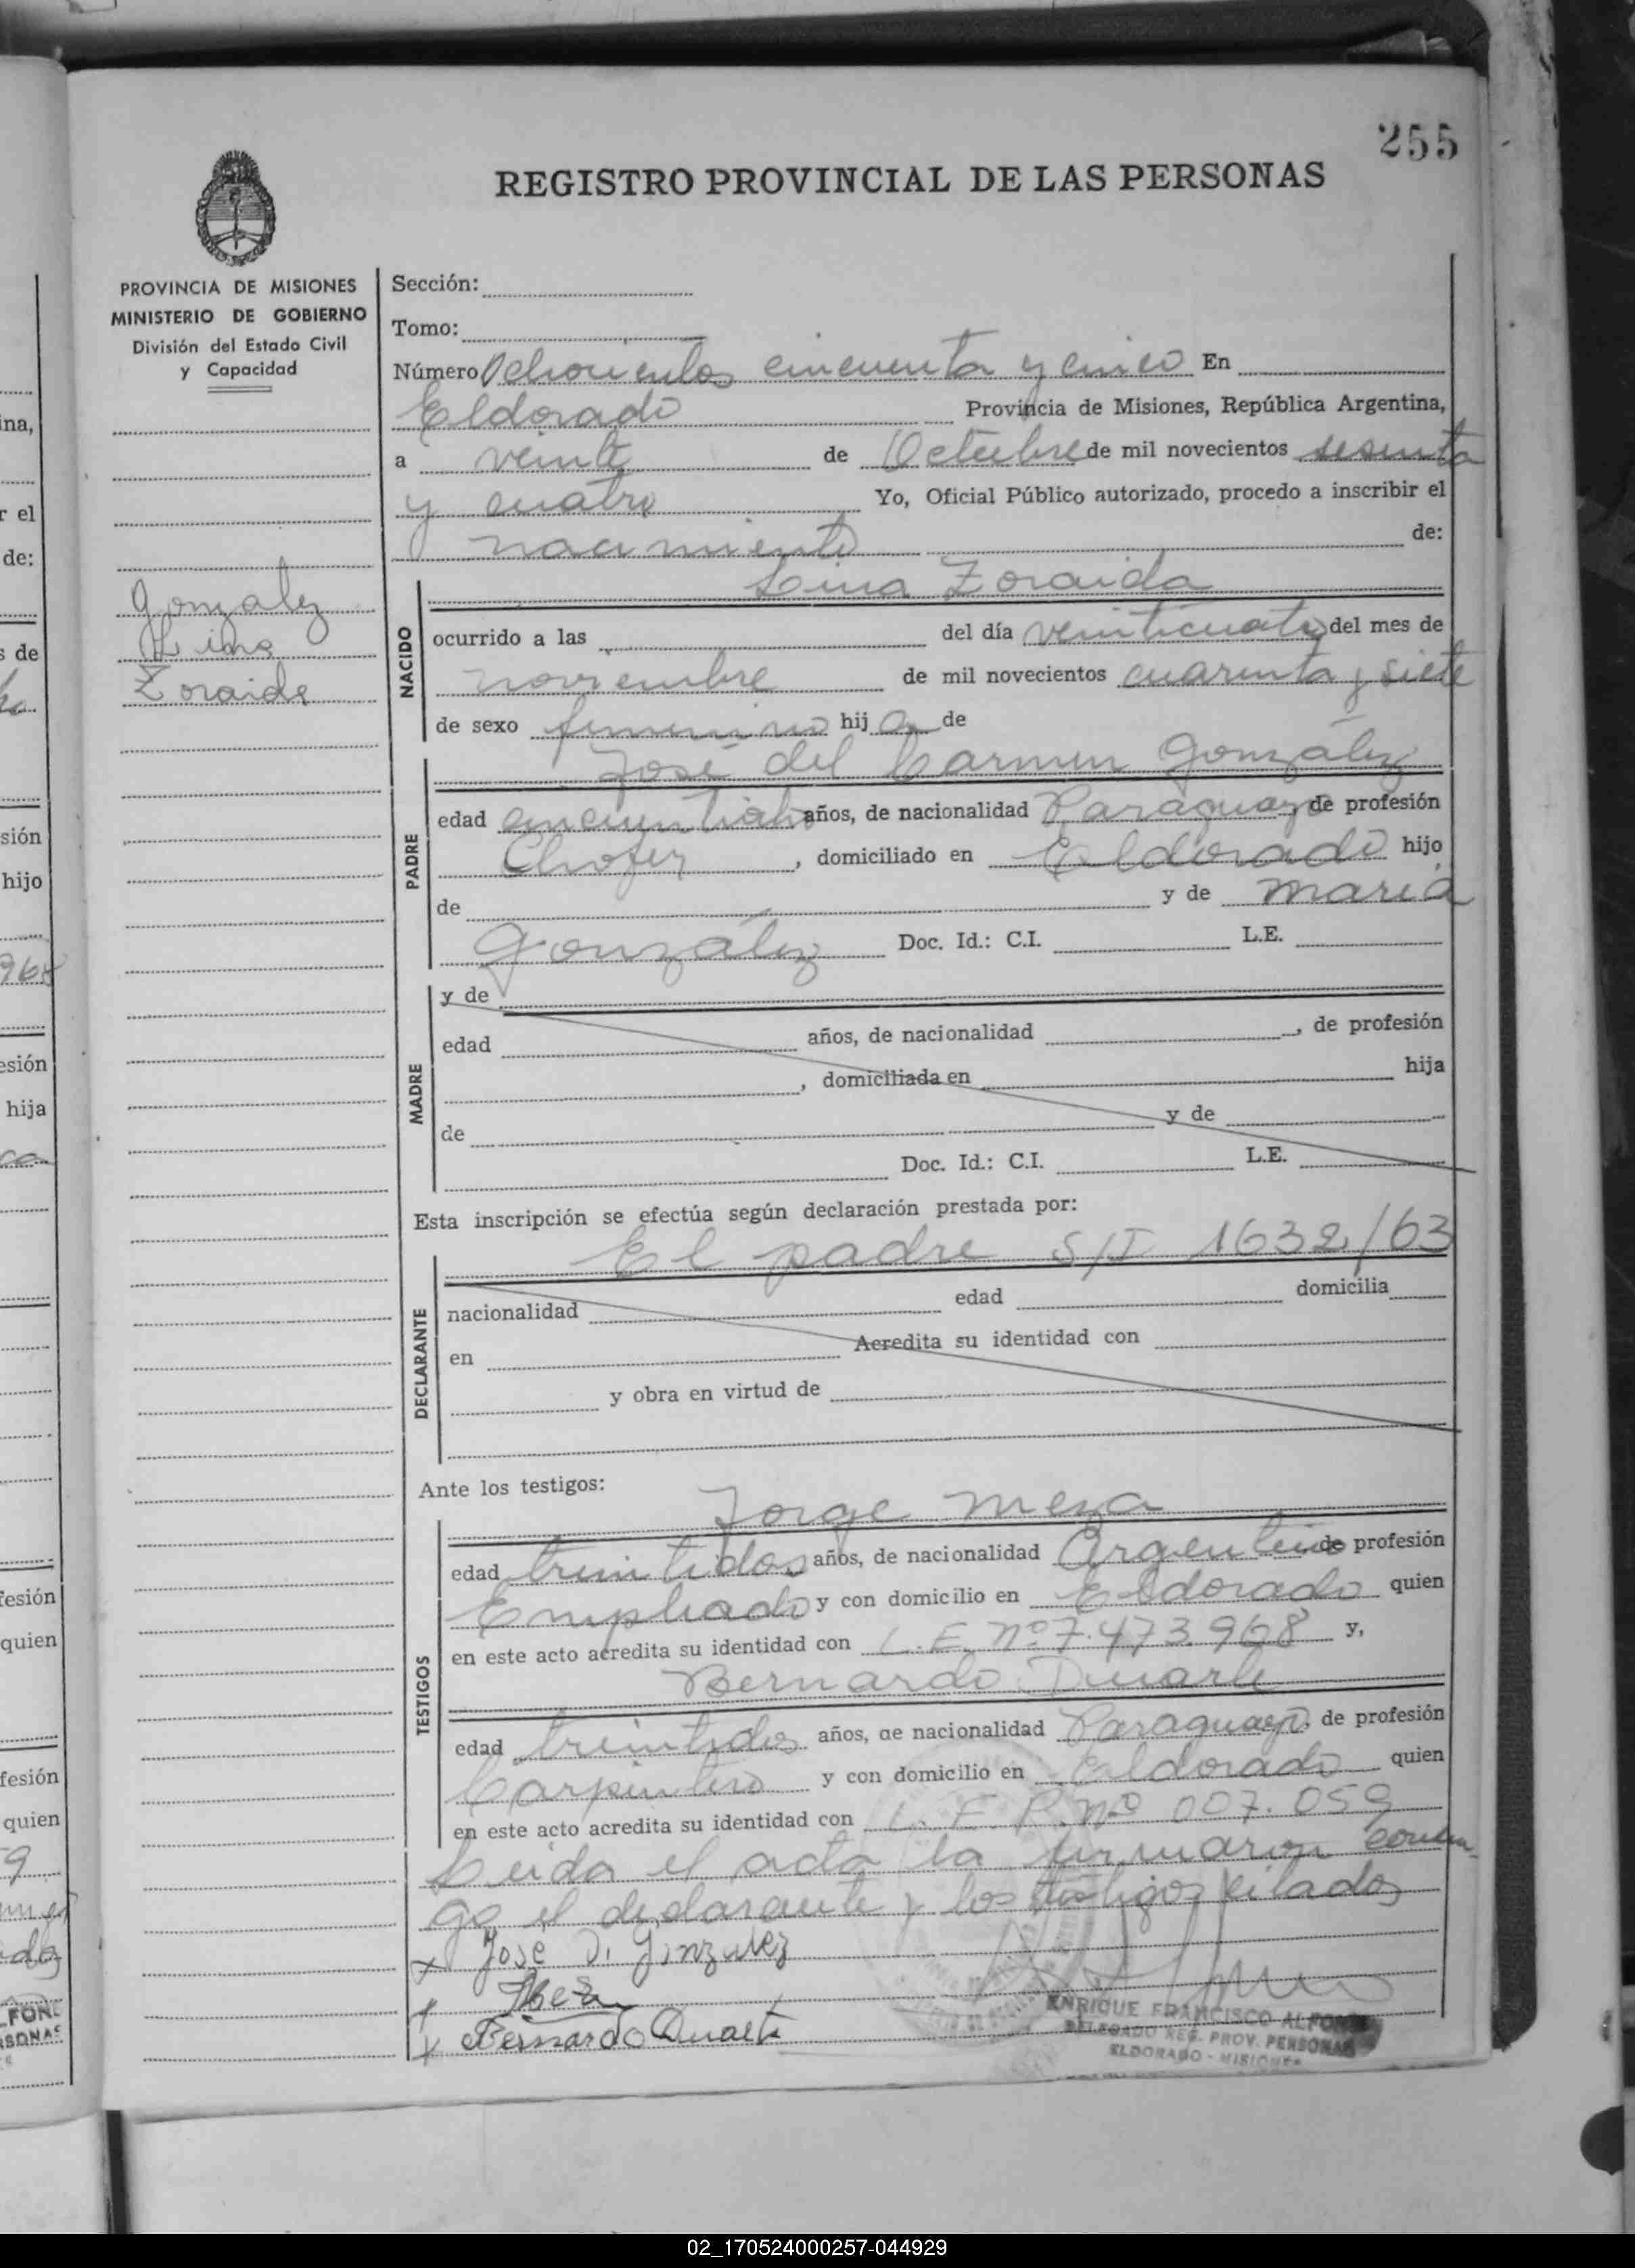 255
REGISTRO PROVINCIAL DE LAS PERSONAS
PROVINCIA DE MISIONES
MINISTERIO DE GOBIERNO
División del Estado Civil
y Capacidad
Gonzalez
Lina
Zoraida
Sección:
Tomo:
Número Ochocientos cincuenta y cinco En
Eldorado Provincia de Misiones, República Argentina,
a veinte de Octubre de mil novecientos sesenta
y cuatro Yo, Oficial Público autorizado, procedo a inscribir el
nacimiento de:
Lina Zoraida
NACIDO
ocurrido a las del día veinticuatro del mes de
noviembre de mil novecientos cuarenta y siete
de sexo femenino hij a de
José del Carmen González
PADRE
edad años, de nacionalidad Paraguayo de profesión
Chofer, domiciliado en Eldorado hijo
de y de María
González Doc. Id.: C.I. L.E.
MADRE
y de
edad años, de nacionalidad , de profesión
, domiciliada en hija
de y de
Doc. Id.: C.I. L.E.
Esta inscripción se efectúa según declaración prestada por:
El padre S/I 1632/63
DECLARANTE
nacionalidad edad domicilia
en Acredita su identidad con
y obra en virtud de
Ante los testigos:
Jorge Meza
TESTIGOS
edad treintidos años, de nacionalidad Argentino de profesión
Empleado y con domicilio en Eldorado quien
en este acto acredita su identidad con L.E. Nº 7.473.968 y,
Bernardo Duarte
edad treintidos años, de nacionalidad Paraguayo, de profesión
Carpintero y con domicilio en Eldorado quien
en este acto acredita su identidad con Nº 007.059
Leida el acta la firmaron conmi-
go el declarante y los testigos citados
x José D. Gonzalez
x Meza
x Bernardo Duarte
ENRIQUE FRANCISCO ALFONSO
DELEGADO REG. PROV. PERSONAS
ELDORADO - MISIONES
02_170524000257-044929